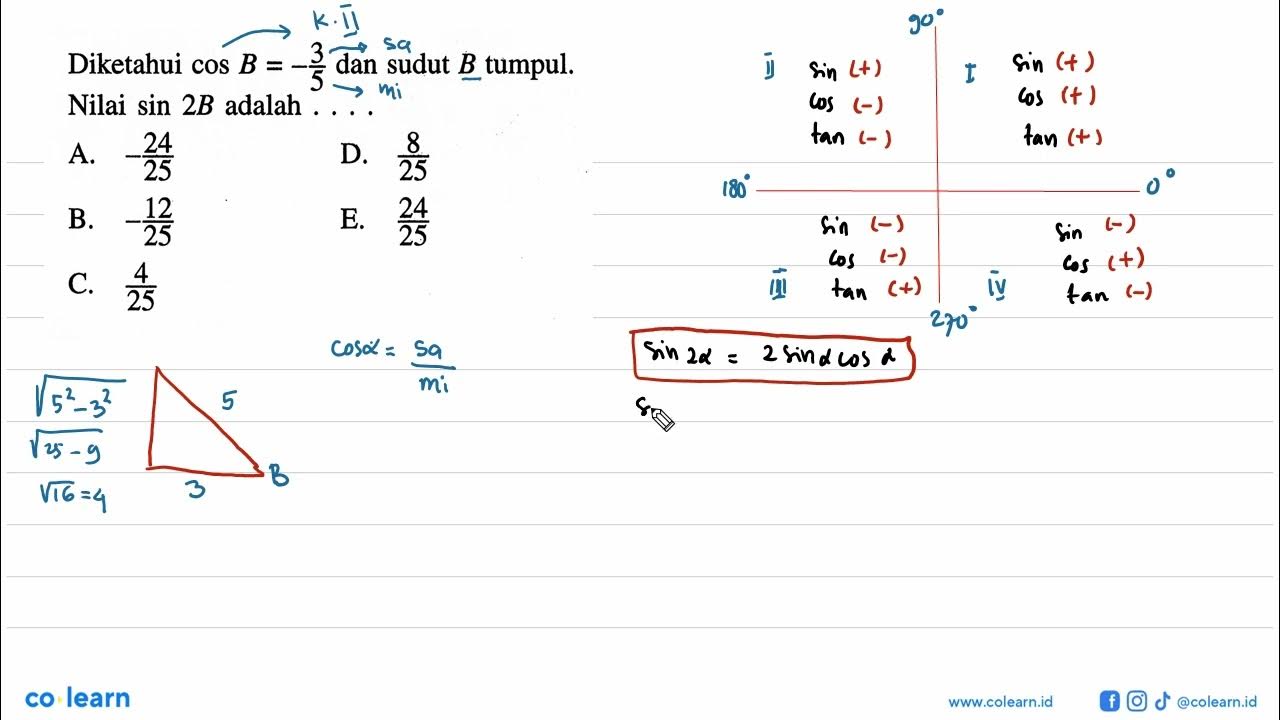 K. II
sa
Diketahui cos B = -3/5 dan sudut B tumpul.
mi
Nilai sin 2B adalah . . . .
A. -24/25
D. 8/25
B. -12/25
E. 24/25
C. 4/25
90°
II
sin (+)
cos (-)
tan (-)
I
sin (+)
cos (+)
tan (+)
180°
0°
sin (-)
cos (-)
III tan (+)
sin (-)
cos (+)
IV tan (-)
270°
cosα = sa/mi
sin 2α = 2 sin α cos α
s
√5² - 3²
√25 - 9
√16 = 4
5
3
B
co learn
www.colearn.id
@colearn.id